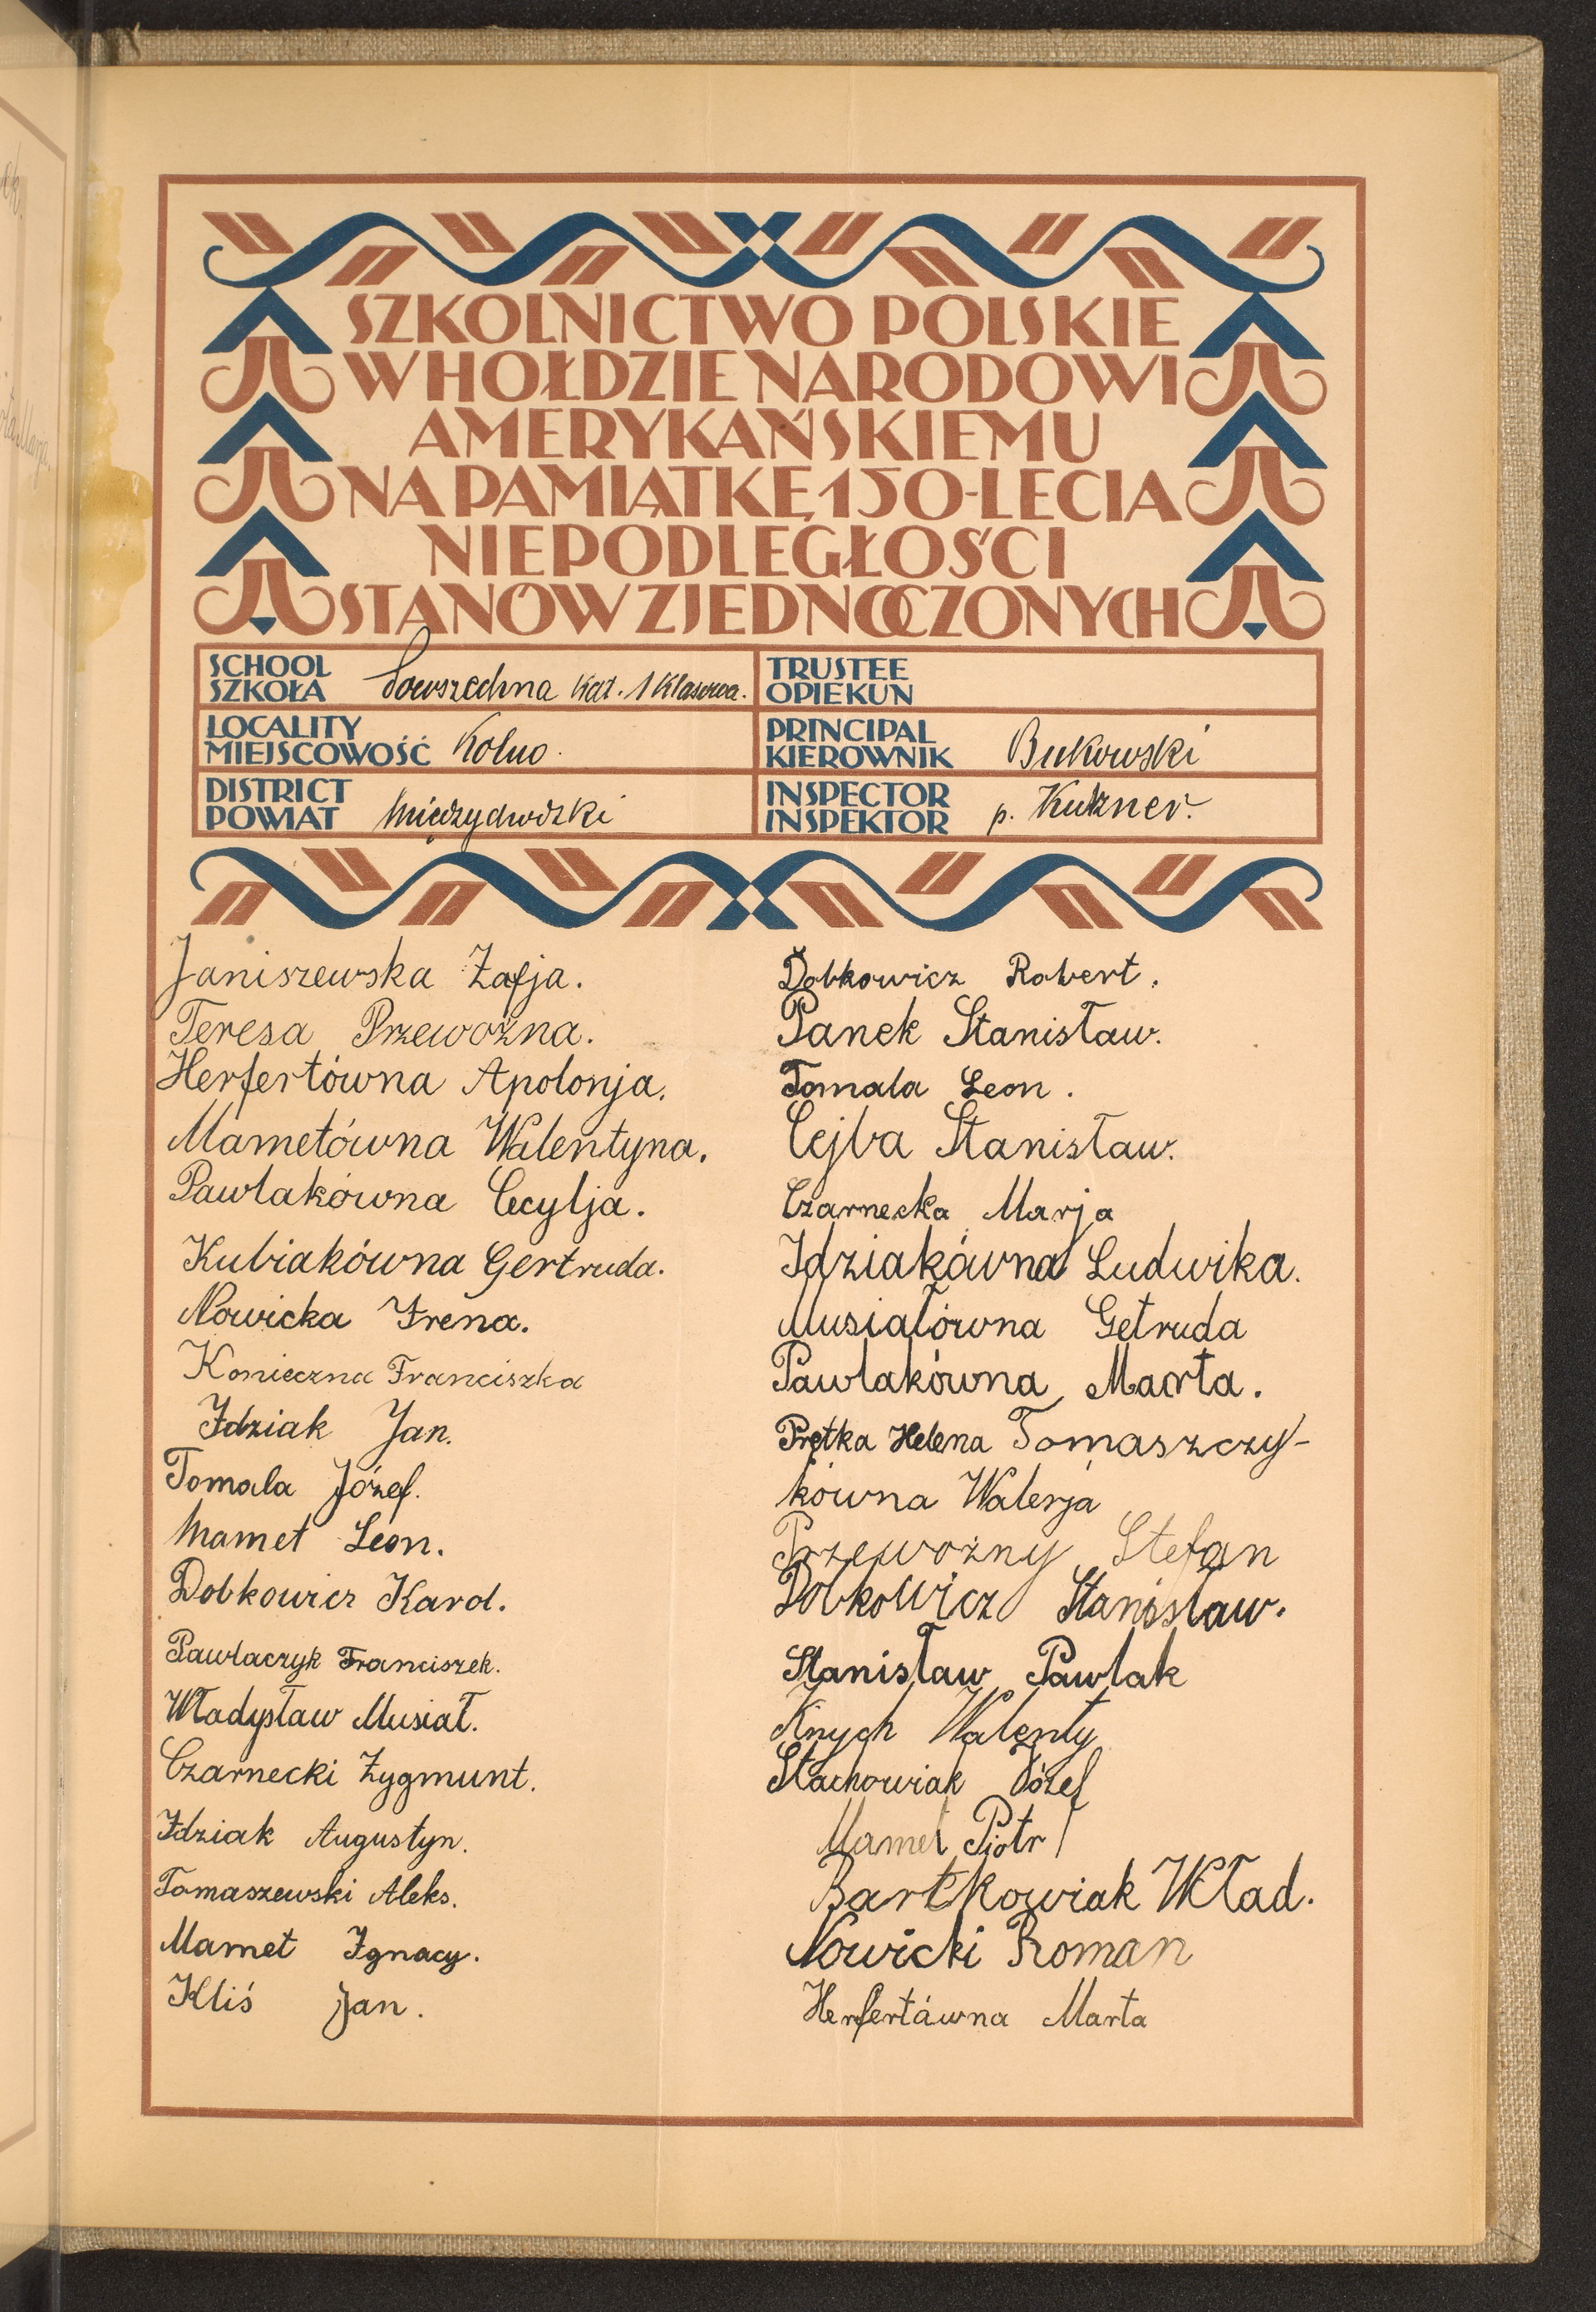 SZKOLNICTWO POLSKIE
W HOŁDZIE NARODOWI
AMERYKAŃSKIEMU
NA PAMIĄTKĘ 150-LECIA
NIEPODLEGŁOŚCI
STANÓW ZJEDNOCZONYCH
SCHOOL
SZKOŁA Powszechna Kat. 1 Klasowa.
TRUSTEE
OPIEKUN
LOCALITY
MIEJSCOWOŚĆ Kolno.
PRINCIPAL
KIEROWNIK Bukowski
DISTRICT
POWIAT Międzychodzki
INSPECTOR
INSPEKTOR p. Kutzner.
Janiszewska Zofja.
Teresa Przewoźna.
Herfertówna Apolonja.
Mametówna Walentyna.
Pawlakówna Cecylja.
Kubiakówna Gertruda.
Nowicka Irena.
Konieczna Franciszka
Idziak Jan.
Tomala Józef.
Mamet Leon.
Dobkowicz Karol.
Pawlaczyk Franciszek.
Władysław Musiał.
Czarnecki Zygmunt.
Idziak Augustyn.
Tomaszewski Aleks.
Mamet Ignacy.
Kliś Jan.
Dobkowicz Robert.
Panek Stanisław.
Tomala Leon.
Cejba Stanisław.
Czarnecka Marja
Idziakówna Ludwika.
Musiałówna Getruda
Pawlakówna Marta.
Prętka Helena Tomaszczy-
kówna Walerja
Przewoźny Stefan
Dobkowicz Stanisław.
Stanisław Pawlak
Knych Walenty
Stachowiak Józef
Mamet Piotr
Bartkowiak Wład.
Nowicki Roman
Herfertówna Marta